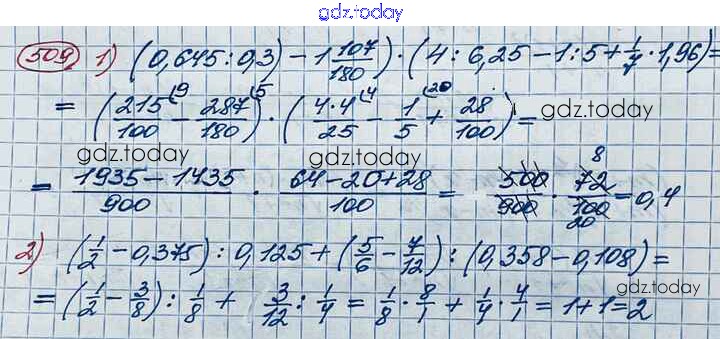 gdz.today
509 1) (0,645 : 0,3) - 1 107/180) · (4 : 6,25 - 1 : 5 + 1/7 · 1,96) =
= (215/100 (9 - 287/180 (5) · (4·4/25 (4 - 1/5 (20 + 28/100) =
gdz.today
gdz.today
= 1935 - 1435/900 · 64 - 20 + 28/100 = 500/900 · 72/100 = 0,4
8
20
gdz.today
2) (1/2 - 0,375) : 0,125 + (5/6 - 7/12) : (0,358 - 0,108) =
gdz.today
= (1/2 - 3/8) : 1/8 + 3/12 : 1/4 = 1/8 · 8/1 + 1/4 · 4/1 = 1 + 1 = 2
gdz.today